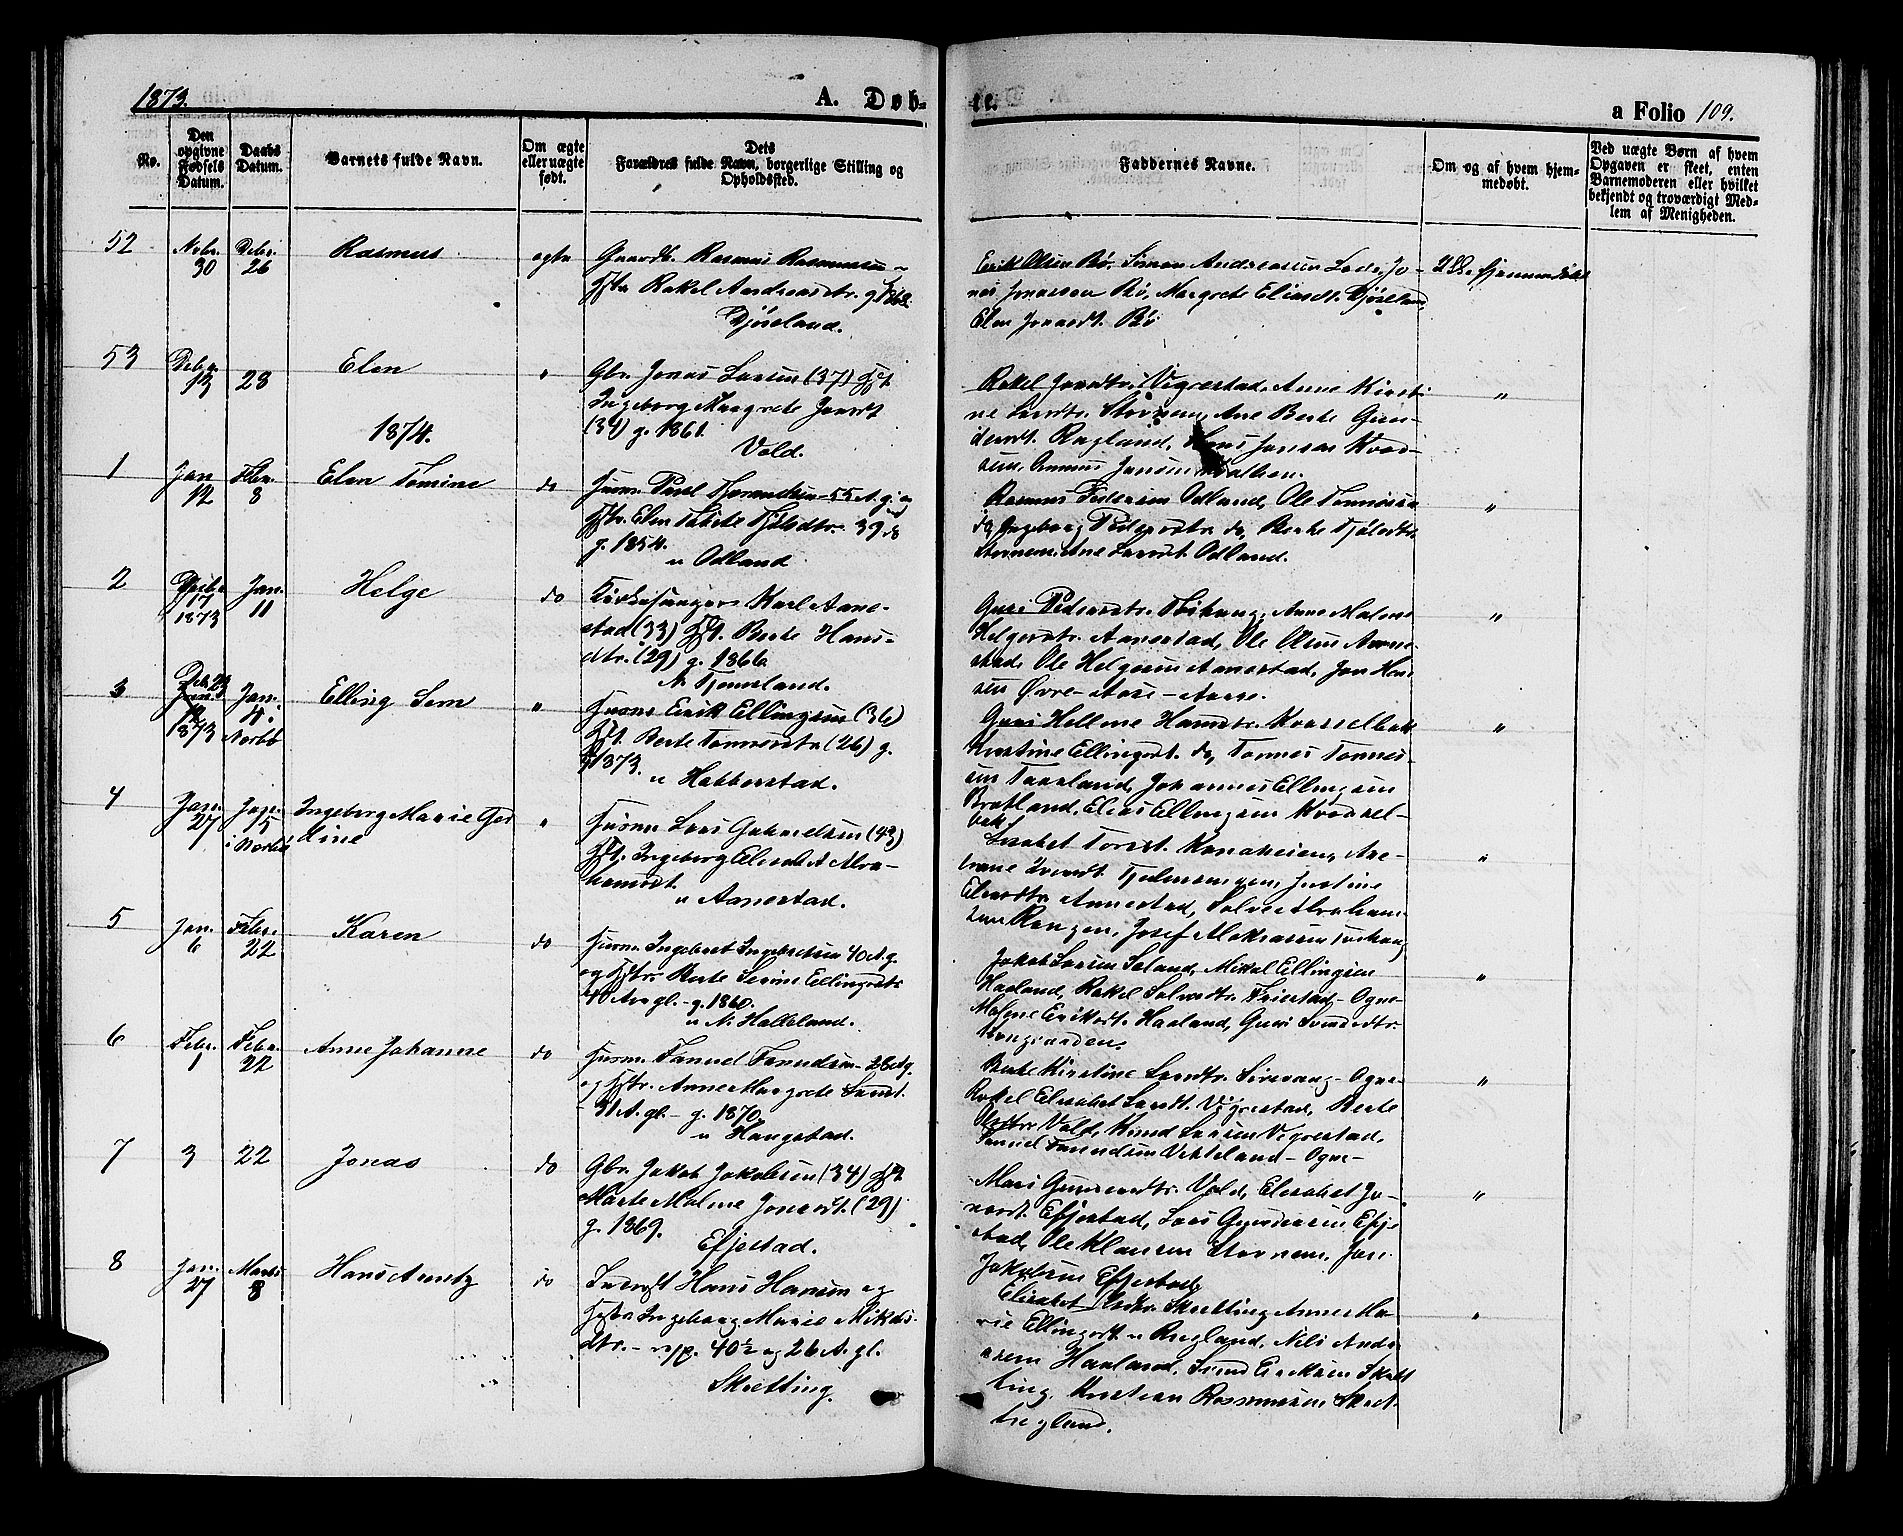 1873.
A. Døb-
te.
a Folio 109.
No.
Den opgivne Fødsels Datum.
Daabs Datum.
Barnets fulde Navn.
Om ægte eller uægte født.
Dets Forældres fulde Navn, borgerlige Stilling og Opholdssted.
Faddernes Navne.
Om og af hvem hjem-
medøbt.
Ved uægte Børn af hvem
Opgaven er skeet, enten
Barnemoderen eller hvilket
bekjendt og troværdigt Med-
lem af Menigheden.
52
Novbr. 30
Debr. 26
Rasmus
ægte
Gaardb. Rasmus Rasmussen
Hstr Rakel Andreasdtr. g. 1862
Djøseland.
Erik Olsen Bø, Simon Andreassen Lode, Jo-
nas Jonassen Bø, Margrete Eliasdt. Djøseland,
Elen Jonasdt. Bø
Ikke hjemmedøbt
53
Debr. 13
28
Elen
"
Gbr. Jonas Larsen (37) Hst
Ingeborg Margrete Jonsdt
(34) g. 1861.
Vold.
Rakel Jonsdtr. Vigrestad, Anne Kirsti-
ne Larsdtr. Stornem, Ane Berte Gun-
dersdt. Rægland, Jonsen
"
1874.
1
Jan 12
Febr. 8
Elen Tomine
do
Husm. Povl 55 A. g.
Hstr. Elen 39 do
g. 1854.
" Odland
Rasmus Pedersen Odland, Ole Tønnesen
do, Ingeborg Pedersdtr. do, Berte
Stornem, Ane Larsdt. Odland.
"
2
Decbr 17 1873
Jan. 11
Helge
do
Kirkesanger Karl Aane-
stad (33) Hst. Berte Hans-
dtr. (29) g. 1866.
N. Tjemsland.
Guri Pedersdtr. Anne Malene
Helgesdtr. Aanestad, Ole Olsen Aane-
stad, Ole Helgesen Aanestad, Jon Han-
sen Øvre-Aase-Aasse.
"
3
Deb. 23
1873
Jan. 4.
Nærbø
Elling Sem
"
Husm Erik Ellingsen (36)
Hst. Berte Tønnesdtr (26) g.
1873.
" Habberstad.
Guri Hellene Hansdtr. Kvasselbak
Kirstine Ellingsdt. do, Tønnes Tønnes-
sen Taarland, Johannes Ellingsen
Bratland, Elias Ellingsen Kvassel-
bak
"
4
Jan. 27
Jan. 15
i Nærbø
Ingeborg Marie Gur
dine
"
Husm Lars Gabrielsen (43)
Hst. Ingeborg Elisabet Abra-
hamsdt.
" Aanestad.
Lisabet Torsdt. Kanaheien, Ane-
Justine
Aanestad, Salve Abraham-
sen Rangen, Josef
"
5
Jan. 6
Febr. 22
Karen
do
Husm. Ingebret Ingebretsen 40 A. g.
og Hstr. Berte Serine Ellingsdtr
40 Aar gl. - g. 1860.
" N. Halleland.
Jakob Larsen Søland, Mikal Ellingsen
Haaland, Rakel Salvesdtr. Feiestad - Ogne-
Malene Eriksdt. Haaland, Guri Svendsdtr.
"
6
Febr. 1
Febr. 22
Anne Johanne
do
Husm. Samuel Samuelsen 26 A g.
og Hstr. Anne Margrete Larsdt.
31 A. gl. - g. 1870.
" Haugstad.
Berte Kirstine Larsdtr. Sirevaag - Ogne-
Rakel Elisabet Larsdt. Vigrestad, Berte
Olsdtr Vold, Knud Larsen Vigrestad,
Samuel Samuelsen - Ogne-
"
7
3
22
Jonas
do
Gbr. Jakob Jakobsen (34) Hst
Marte Malene Jonasdt. (29)
g. 1869.
Efjestad.
Mari Gundersdtr. Vold, Elisabet Jo-
nasdt. Efjestad, Lars Gundersen Efje-
stad, Ole Klausen Stornem, Jon
Jakobsen Efjestad.
"
8
Jan. 27
Marts 8
Hans Arentz
do
Hans Hansen og
Hstr Ingeborg Marie Mikals-
dtr. - resp. 40½ og 26 A. gl.
Skretting.
Elisabet Olsdtr. Skretting, Anne Ma-
rie Ellingsdt. " Rægland, Nils Andr-
Haaland, Svend Eriksen Skret
ting, Kristian Rasmussen Skret-
"